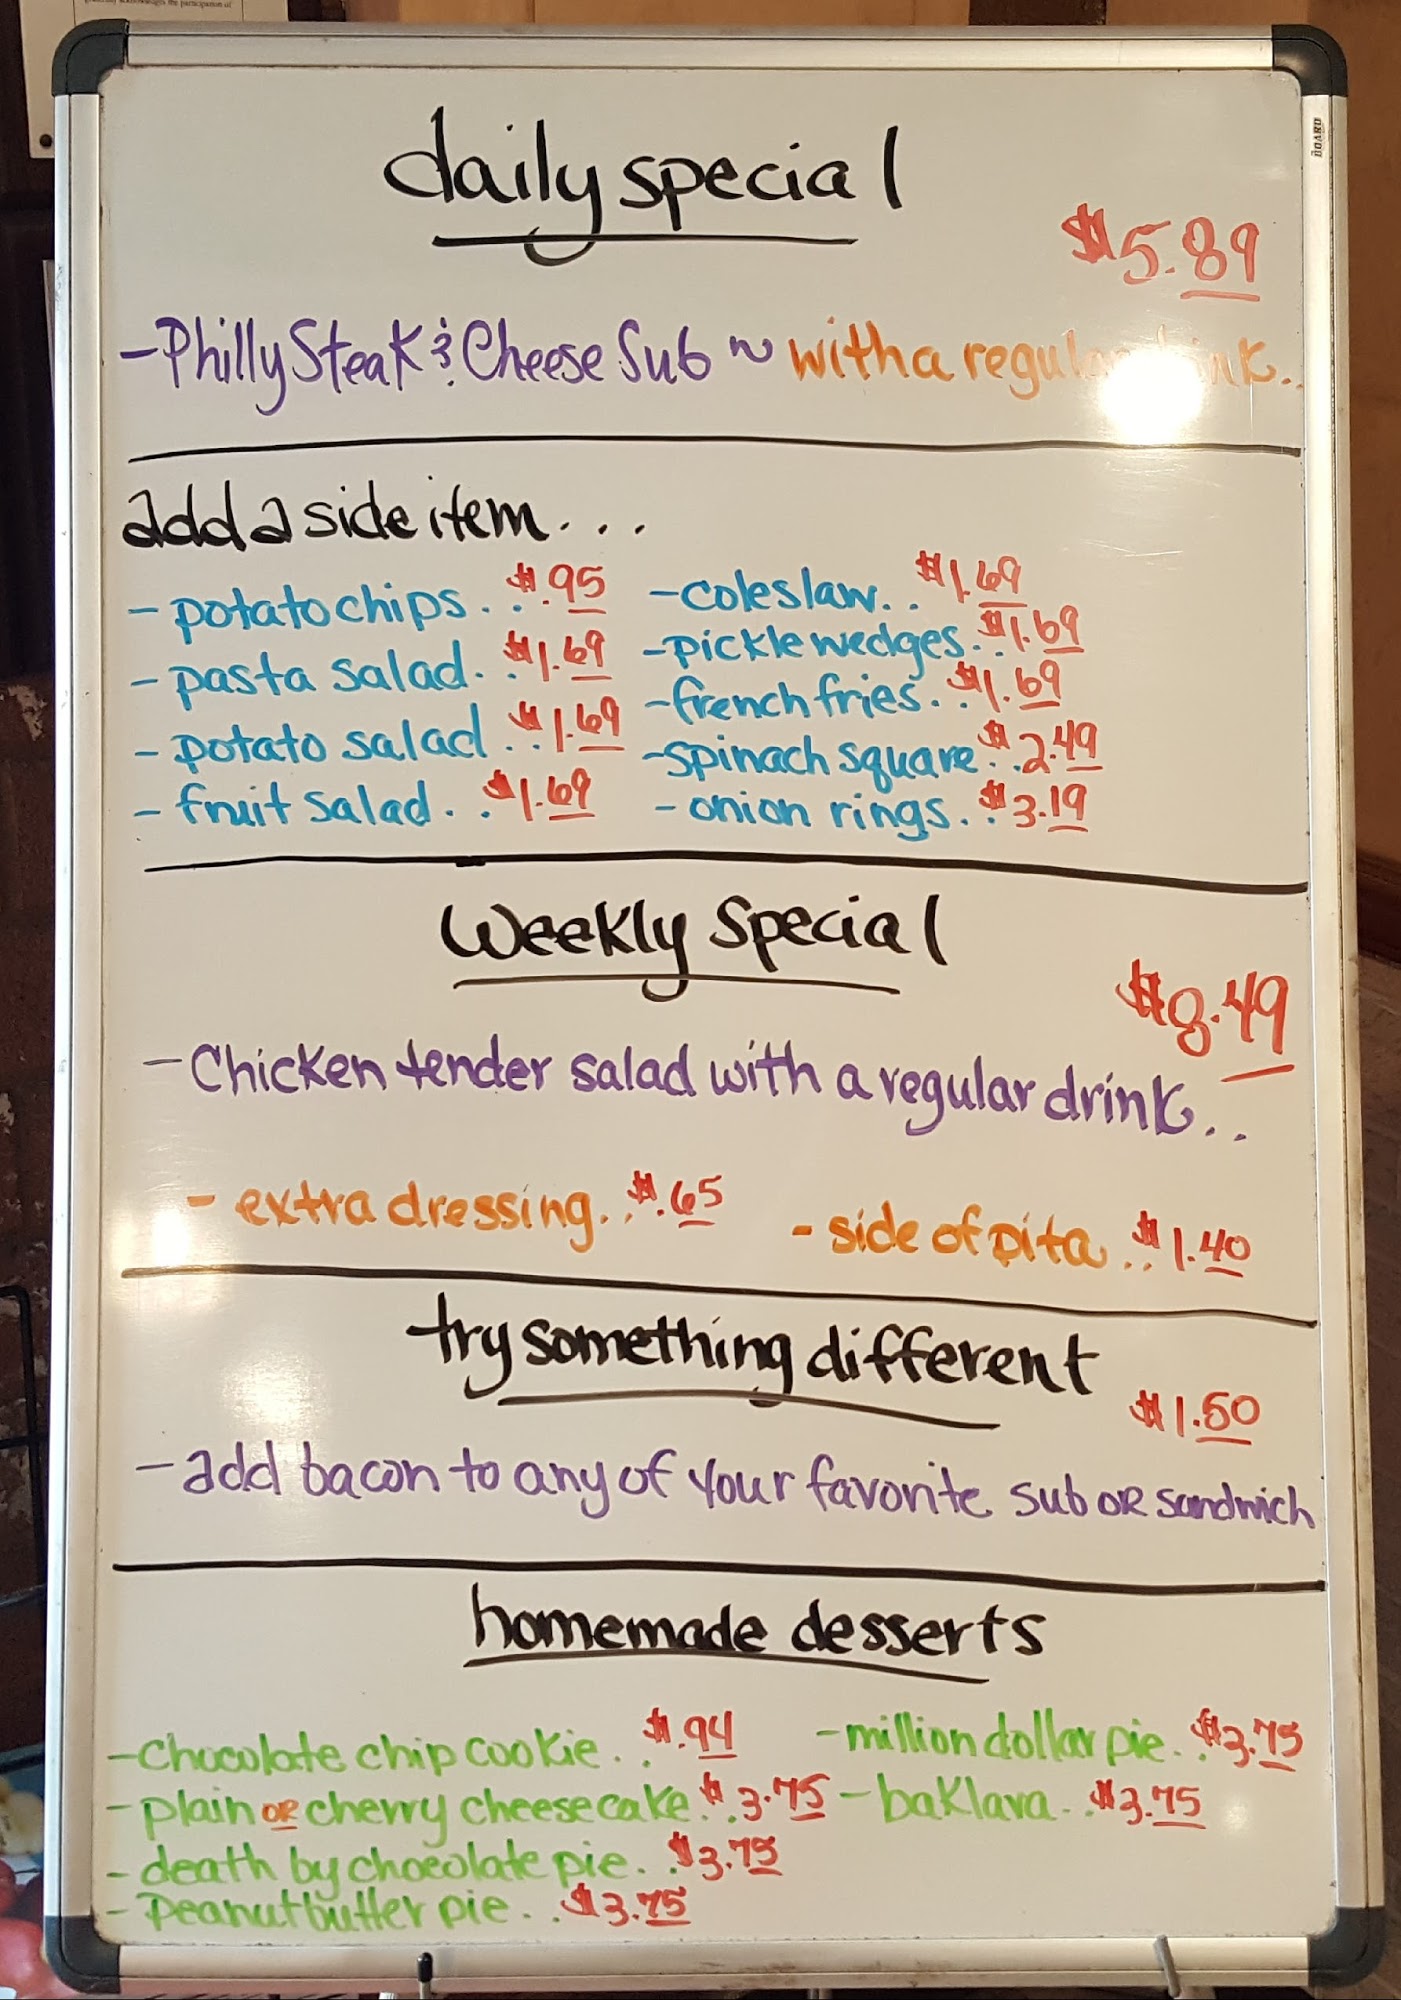 daily special
$5.89
- Philly Steak & Cheese Sub ~ with a regular drink..
add a side item...
- potato chips... $.95
- pasta salad... $1.69
- potato salad... $1.69
- fruit salad... $1.69
- coleslaw... $1.69
- pickle wedges... $1.69
- french fries... $1.69
- spinach square... $2.49
- onion rings... $3.19
Weekly Special
$8.49
- Chicken tender salad with a regular drink...
- extra dressing... $.65
- side of pita... $1.40
try something different
$1.50
- add bacon to any of your favorite sub OR sandwich
homemade desserts
- chocolate chip cookie... $.94
- plain or cherry cheesecake... $3.75
- death by chocolate pie... $3.75
- Peanutbutter pie... $3.75
- million dollar pie... $3.75
- baklava... $3.75
BOARD